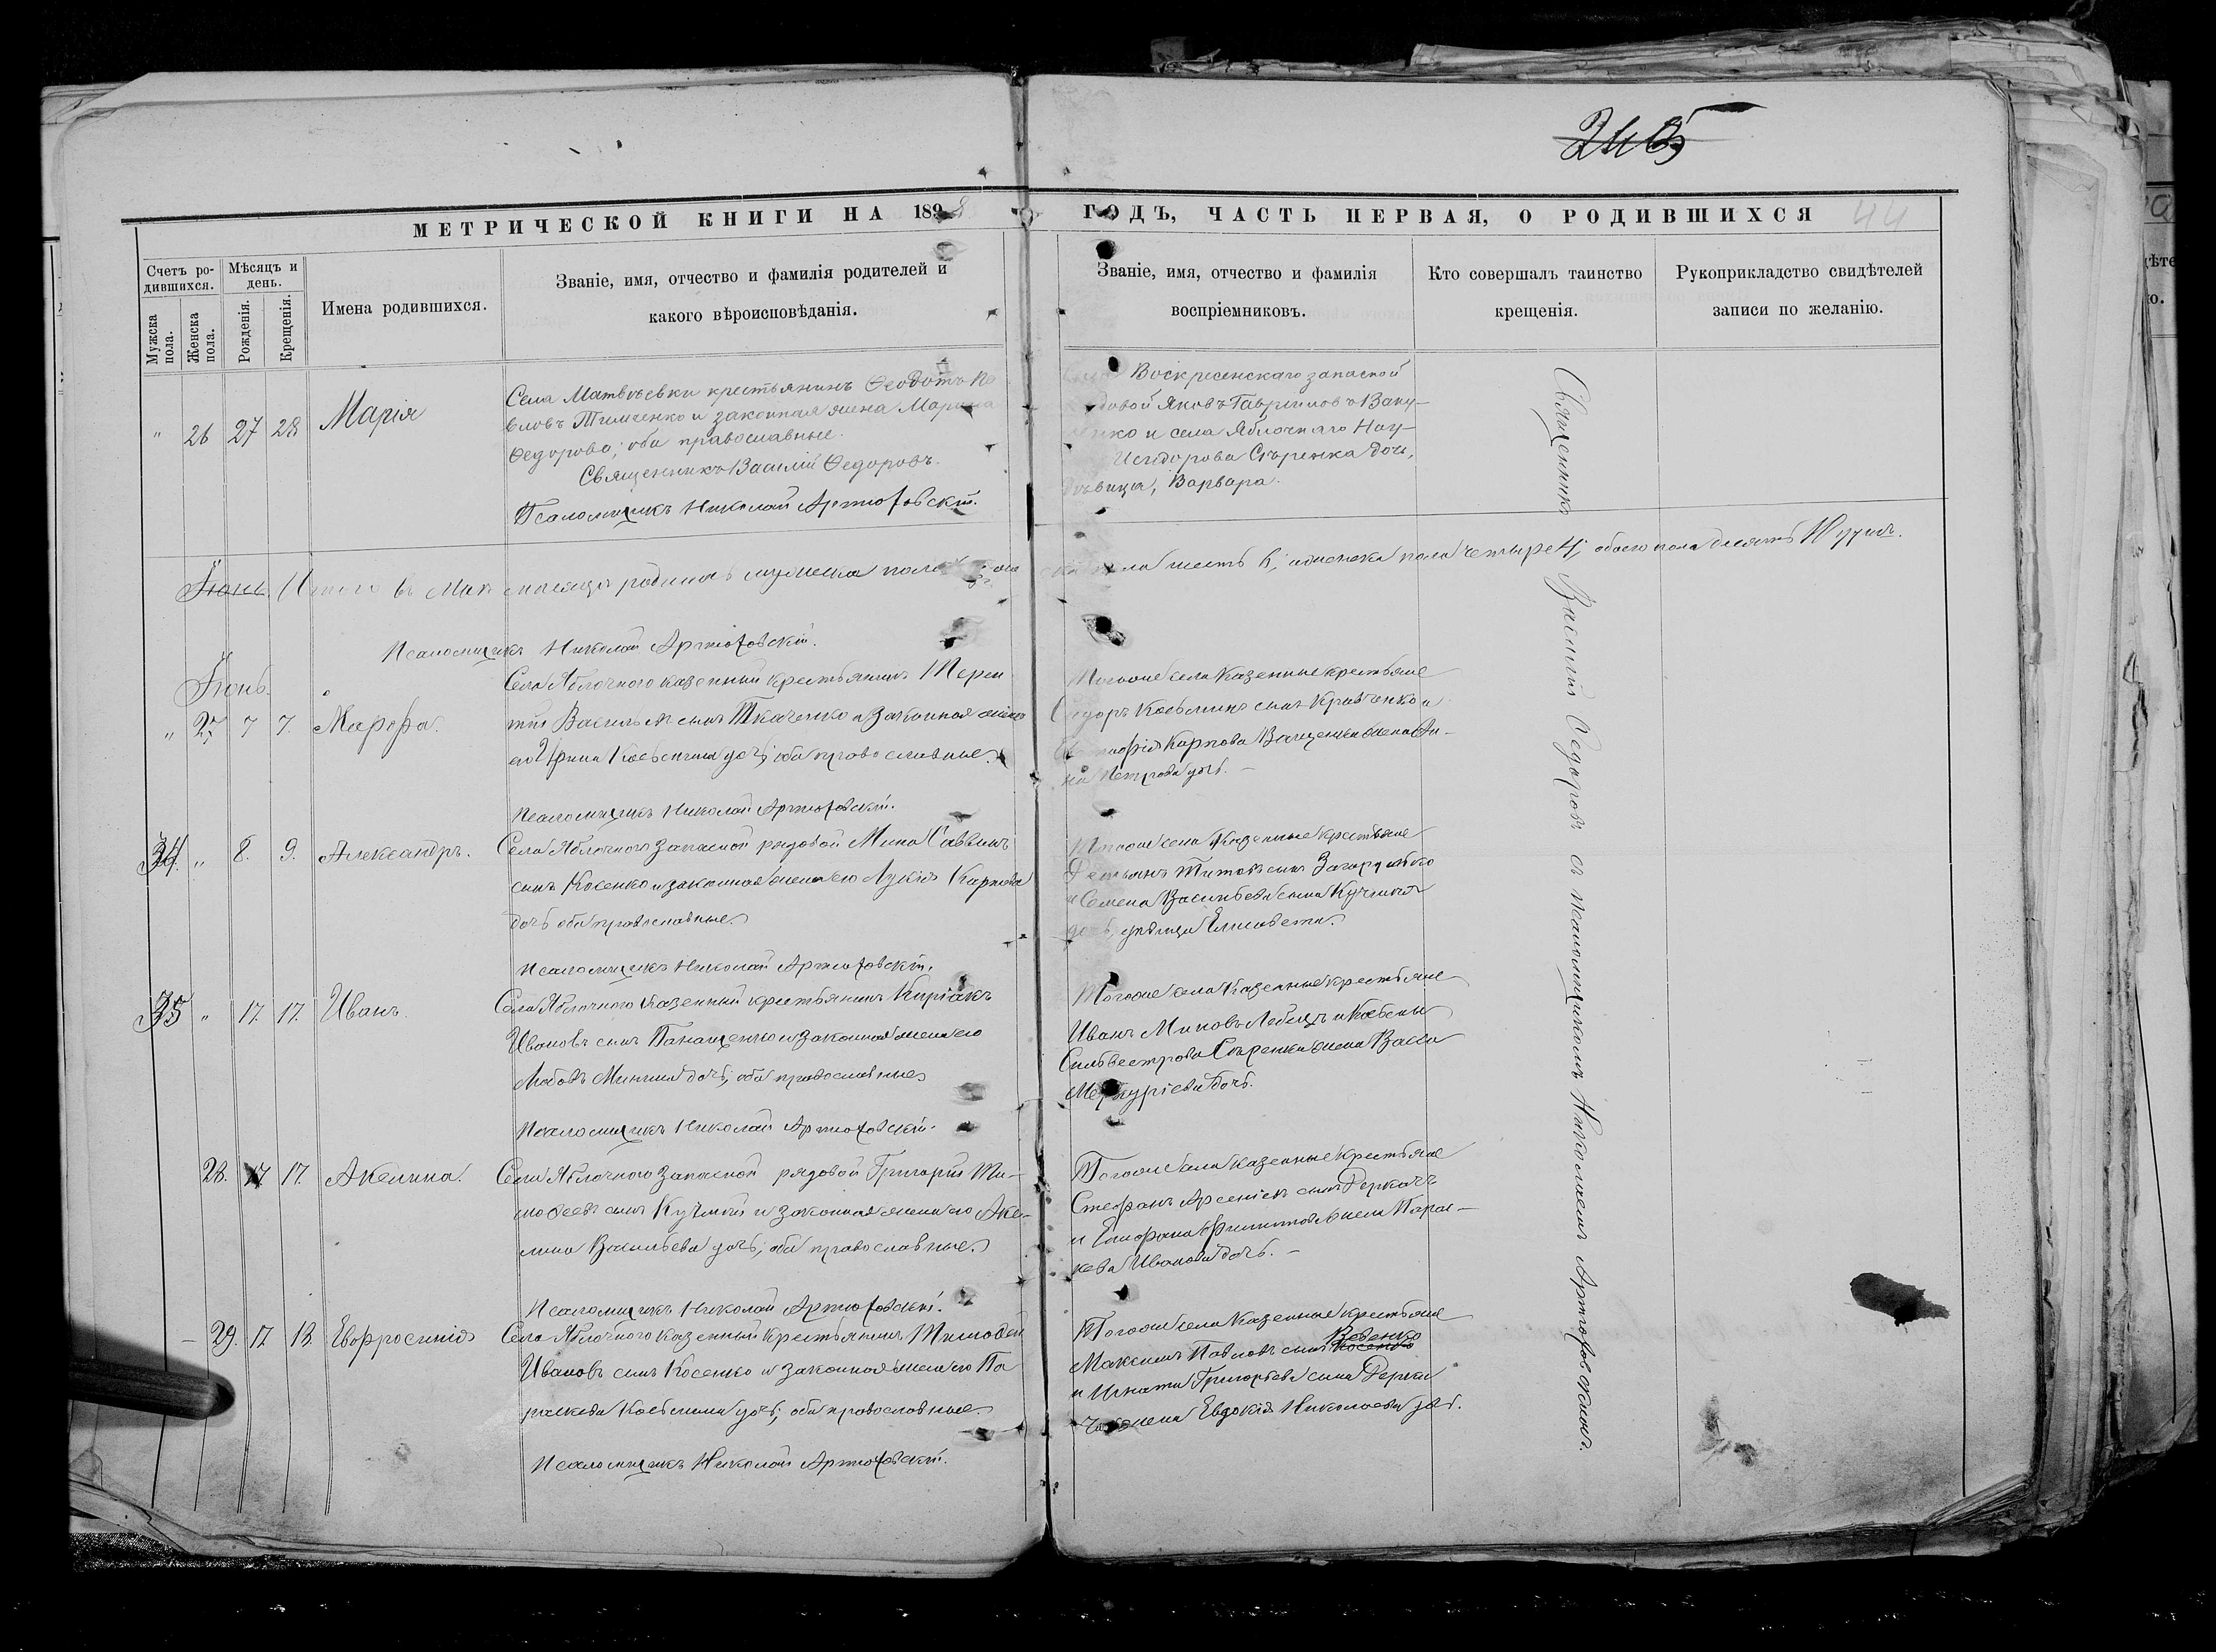 245
МЕТРИЧЕСКОЙ КНИГИ НА 1898 ГОДЪ, ЧАСТЬ ПЕРВАЯ, О РОДИВШИХСЯ 44
Счетъ родившихся.
Мужска пола.
Женска пола.
Мѣсяцъ и день.
Рожденія.
Крещенія.
Имена родившихся.
Званіе, имя, отчество и фамилія родителей и
какого вѣроисповѣданія.
Званіе, имя, отчество и фамилія
воспріемниковъ.
Кто совершалъ таинство
крещенія.
Рукоприкладство свидѣтелей
записи по желанію.
" 26 27 28 Марія
Села Матвѣевки крестьянинъ Ѳеодотъ
Тимченко и законная жена
Ѳедорова; оба православные.
Священникъ Василій Ѳедоровъ.
Псаломщикъ Николай Артюховскій.
Воскресенскаго запасной
Яковъ Гавріиловъ
и села Яблочнаго
Исидорова Сѣренка дочь,
дѣвица, Варвара.
Іюнь. Итого въ Маѣ мѣсяцѣ родилось мужска пола
пола шесть 6, женска пола четыре 4, обоего пола десять 10 душъ.
Псаломщикъ Николай Артюховскій.
Іюнь.
" 27 7 7. Марфа.
Села Яблочного казенный крестьянинъ Терен
тій Васильевъ сынъ Ткаченко и законная жена
его Ирина Косьмина дочь; оба православные.
Псаломщикъ Николай Артюховскій.
Тогоже села казенные крестьяне
Сидоръ Косьминъ сынъ Кравченко и
Карпова Ващенка жена Ан-
на Петрова дочь. –
34. " 8. 9. Александръ.
Села Яблочного запасной рядовой Мина Саввинъ
сынъ Косенко и законная жена его Лукія Карпова
дочь оба православные.
Псаломщикъ Николай Артюховскій.
Тогоже села казенные крестьяне
Демьянъ Титовъ сынъ
и Семена Васильева сына Кучмія
дочь, дѣвица Елисавета.
35 " 17. 17. Иванъ.
Села Яблочного казенный крестьянинъ Киріакъ
Ивановъ сынъ Панащенко и законная жена его
Любовь Минина дочь; оба православные
Псаломщикъ Николай Артюховскій.
Тогоже села казенные крестьяне
Иванъ Миновъ Лебедь и Косьмы
Сильвестрова Сѣренка жена Васса
Меркуріева дочь.
28. 17 17. Акелина.
Села Яблочного запасной рядовой Григорій Ти-
моѳеевъ сынъ Кучмій и законная жена его Аке-
лина Васильева дочь; оба православные.
Псаломщикъ Николай Артюховскій.
Тогоже села казенные крестьяне
Стефанъ Арсеніевъ сынъ Деркачъ
и Епифана Филиппова жена Парас-
кева Иванова дочь. –
– 29. 17. 18. Евфросинія
Села Яблочного казенный крестьянинъ Тимоѳей
Ивановъ сынъ Косенко и законная жена его Па
раскева Косьмина дочь; оба православные.
Псаломщикъ Николай Артюховскій.
Тогоже села казенные крестьяне
Максимъ Павловъ сынъ Косенко Веденко
и Игната Григорьева сына Дерка
ча жена Евдокія Николаева дочь.
Священникъ Василій Ѳедоровъ съ псаломщикомъ Николаемъ Артюховскимъ.